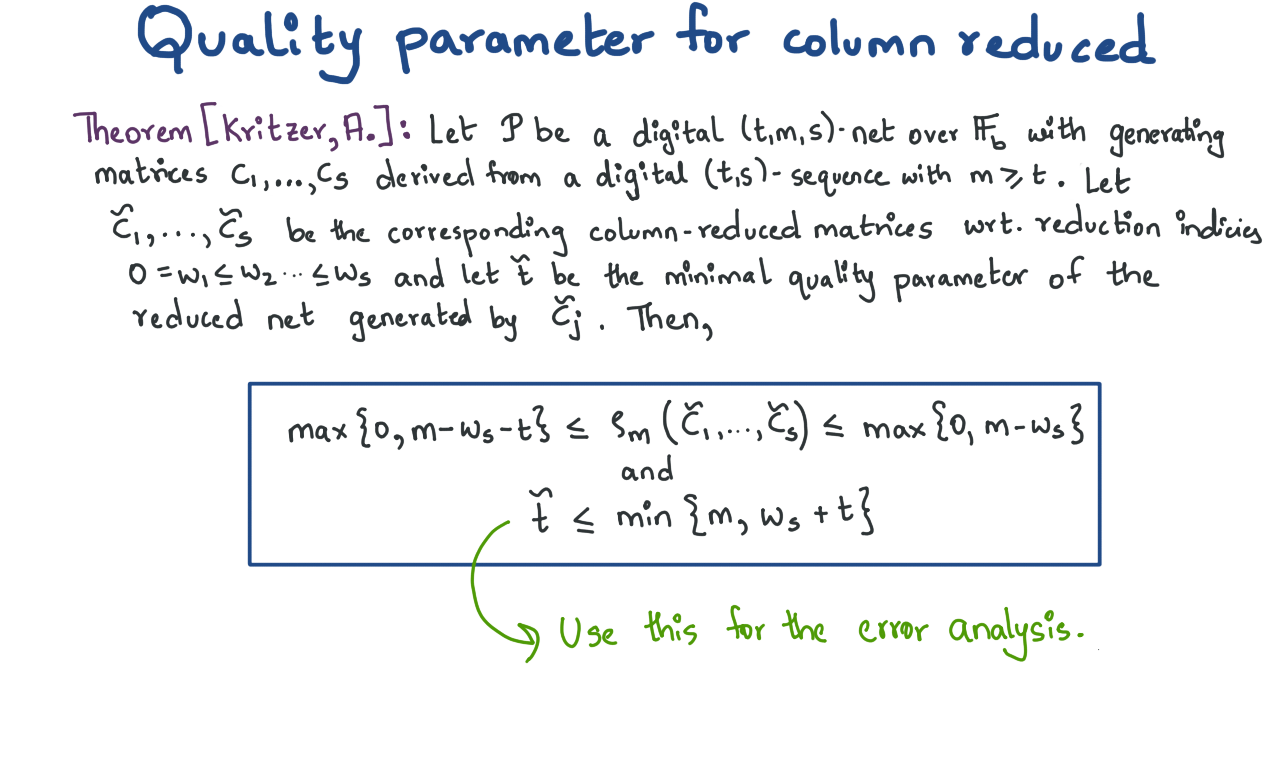 Quality parameter for column reduced
Theorem [Kritzer, A.]: Let P be a digital (t,m,s)-net over 𝔽_b with generating
matrices C₁,...,Cₛ derived from a digital (t,s)-sequence with m ≥ t. Let
C̃₁,...,C̃ₛ be the corresponding column-reduced matrices wrt. reduction indicies
0 = w₁ ≤ w₂ ... ≤ wₛ and let t̃ be the minimal quality parameter of the
reduced net generated by C̃ⱼ. Then,
max{0, m-wₛ-t} ≤ ρₘ(C̃₁,...,C̃ₛ) ≤ max{0, m-wₛ}
and
t̃ ≤ min {m, wₛ + t}
Use this for the error analysis.